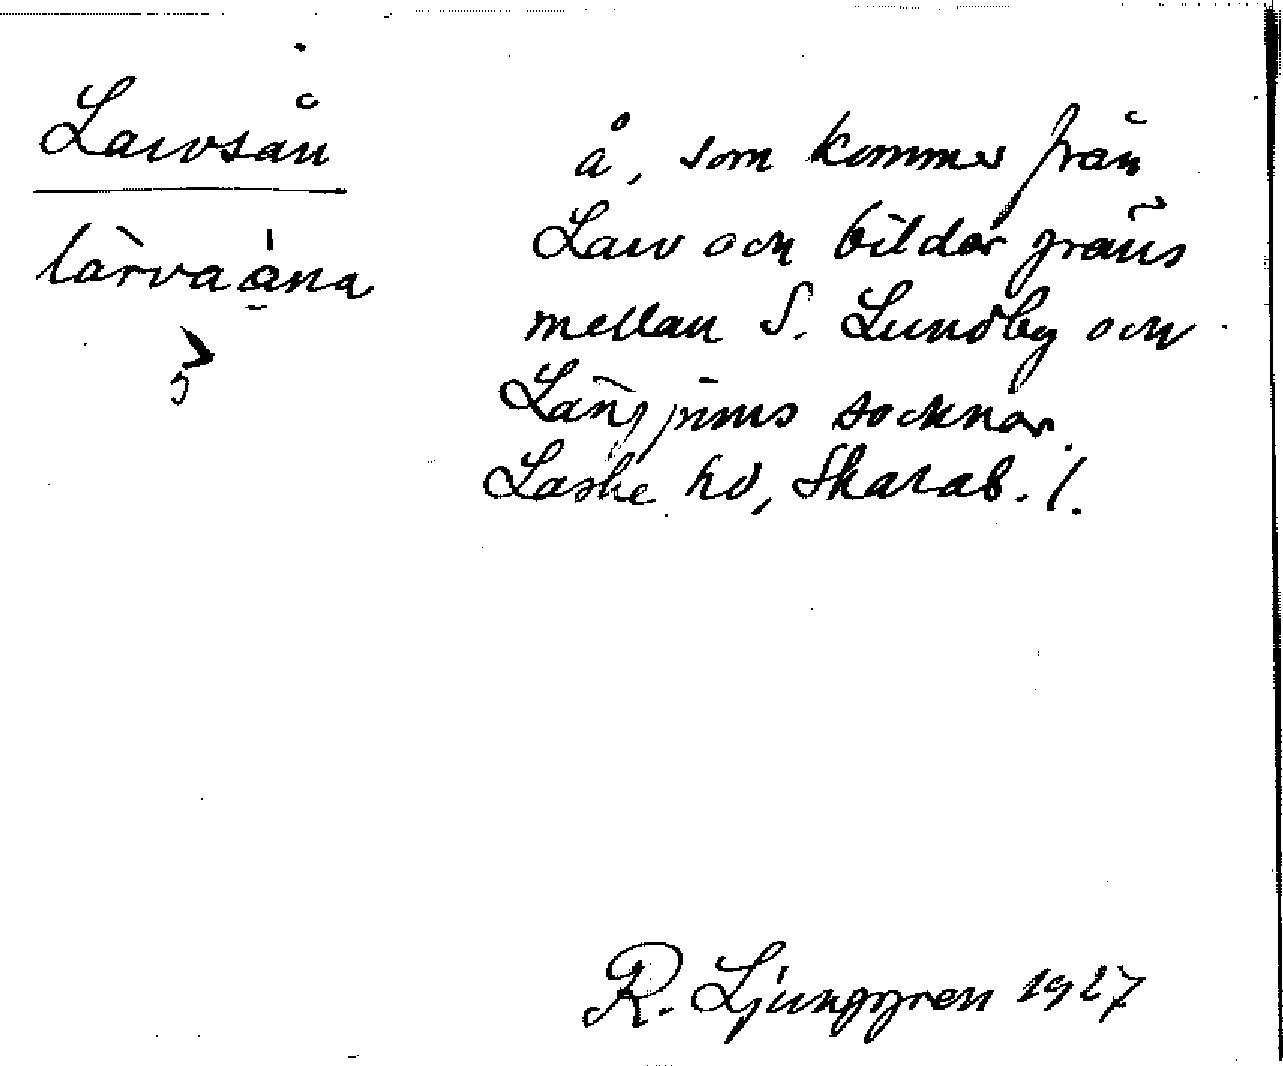 Larvsån
làrvaåna
å, som kommer från
Larv och bildar gräns
mellan S. Lundby och
Långjums socknar.
Laske hd, Skarab. l.
R. Ljunggren 1927